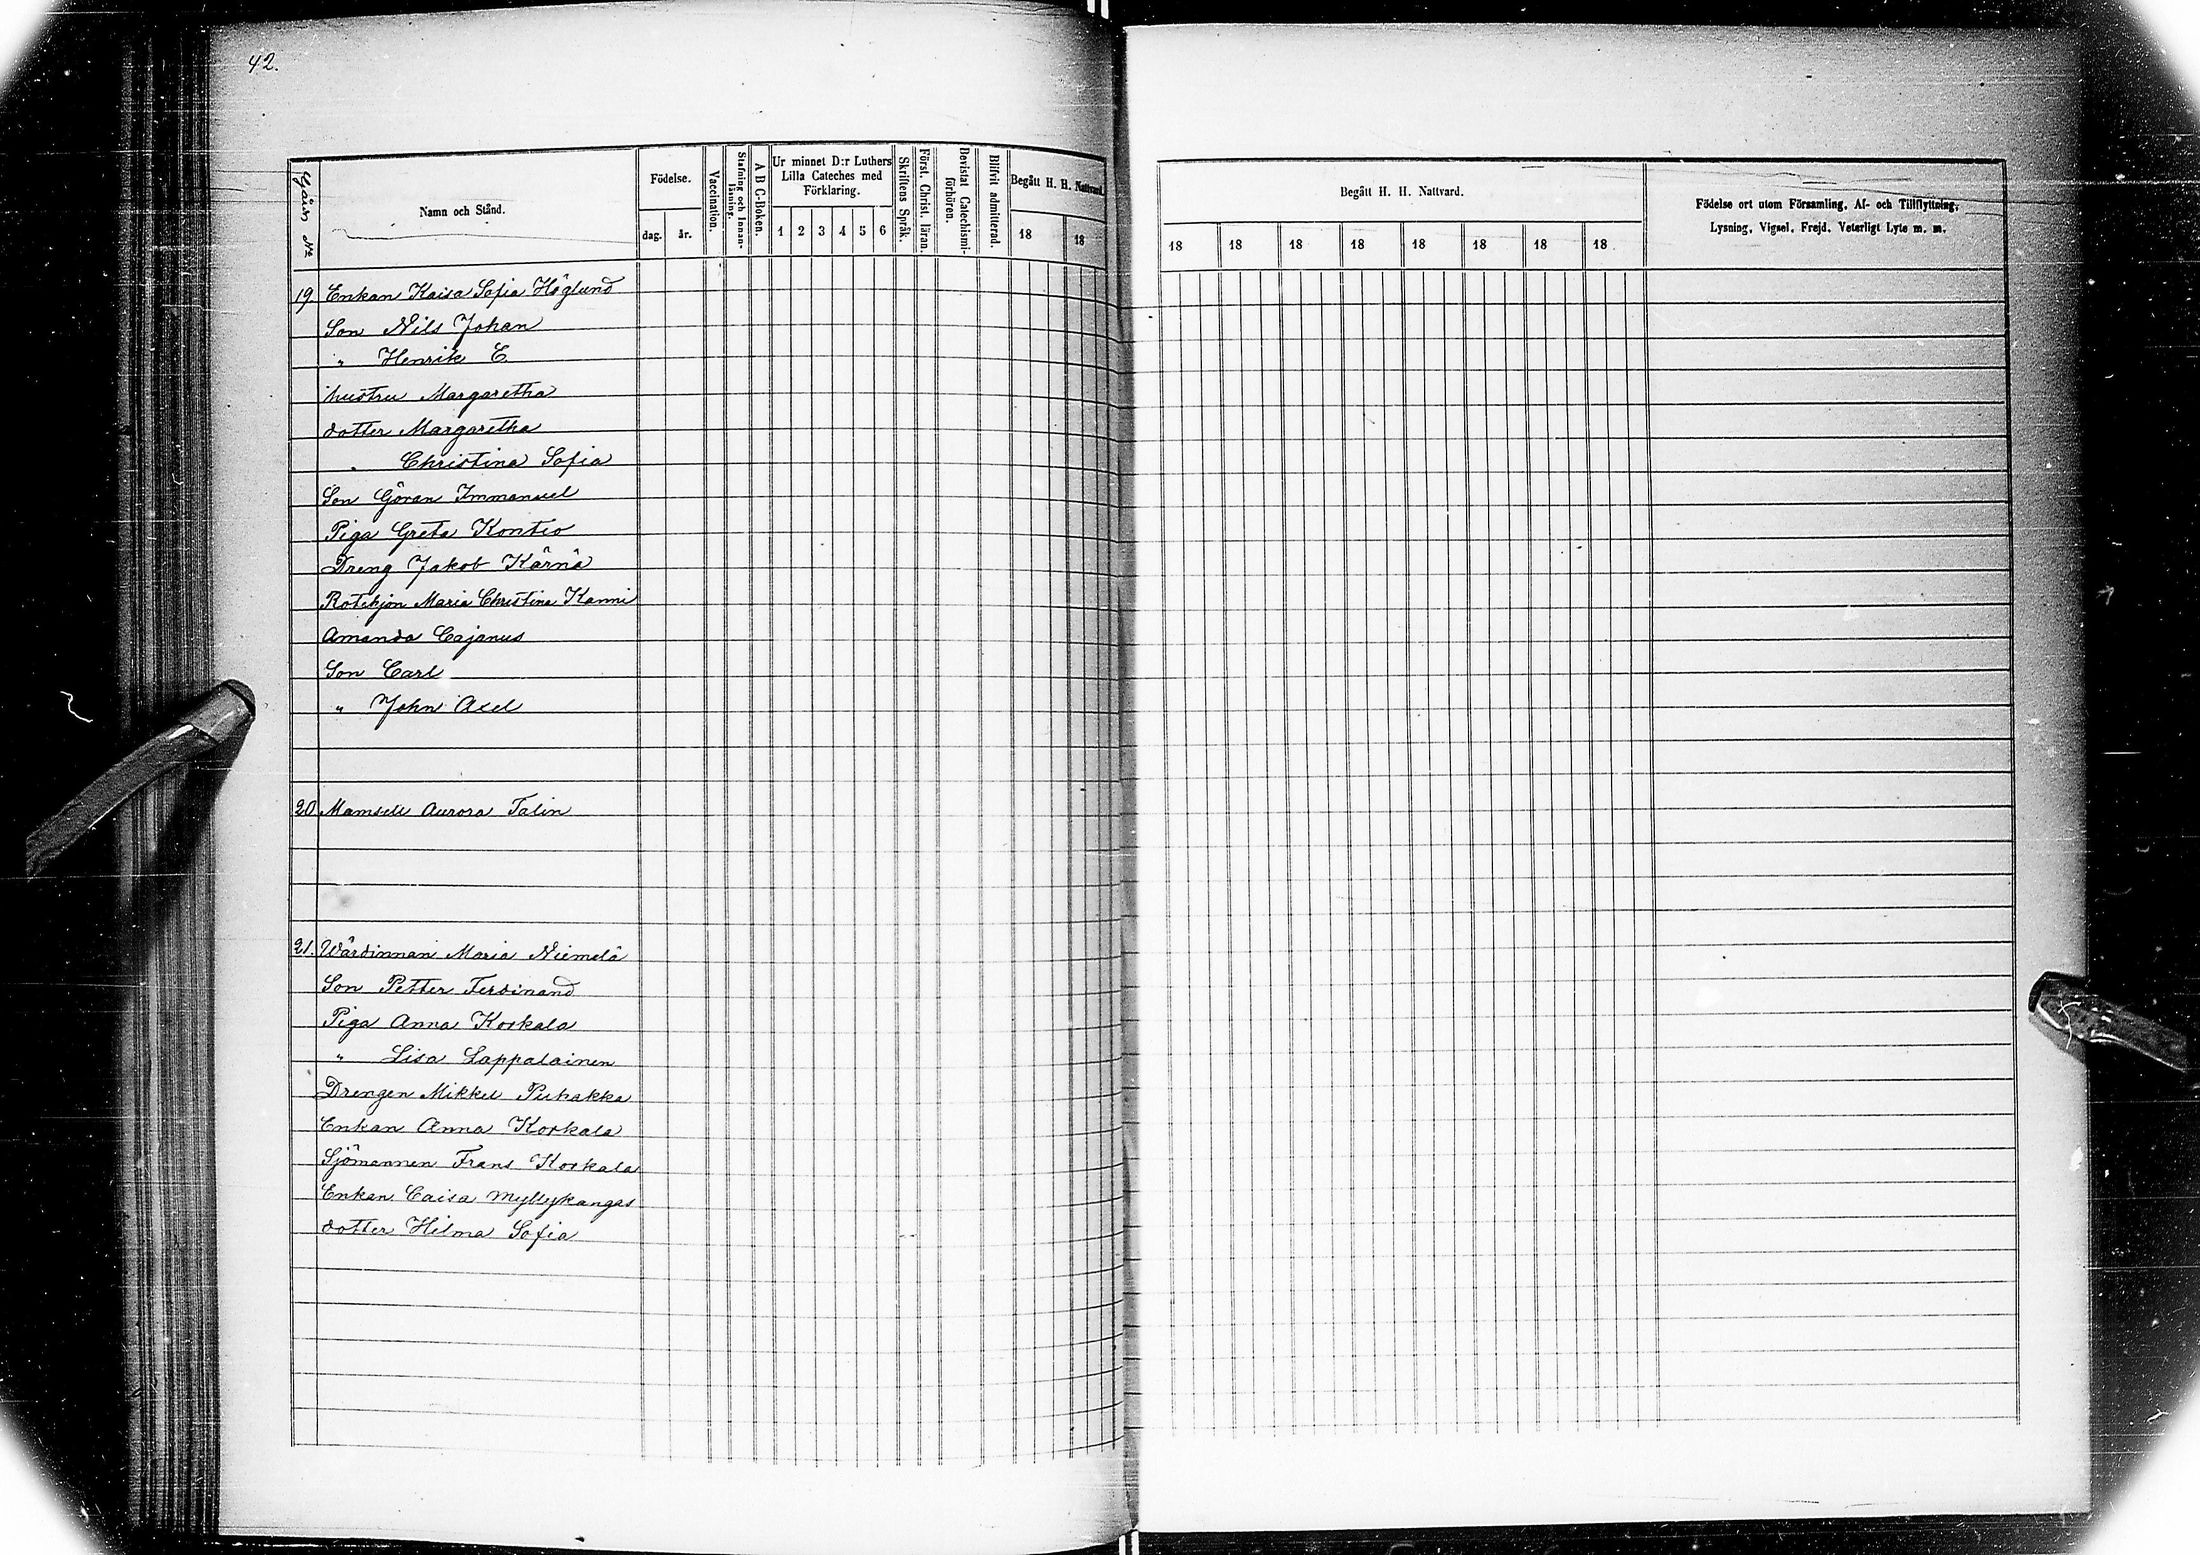 42.
Gårds No
Namn och Stånd.
Födelse.
dag.
år.
Vaccination.
Stafning och Innanläsning.
A B C-Boken.
Ur minnet D:r Luthers
Lilla Cateches med
Förklaring.
1 2 3 4 5 6
Skriftens Språk.
Först. Christ. läran.
Bevistat Catechismiförhören.
Blifvit admitterad.
Begått H. H. Nattvard.
18 18
Begått H. H. Nattvard.
18 18 18 18 18 18 18 18
Födelse ort utom Församling, Af- och Tillflyttning,
Lysning, Vigsel, Frejd, Veterligt Lyte m. m.
19 Enkan Kaisa Sofia Höglund
Son Nils Johan
" Henrik E.
hustru Margaretha
dotter Margaretha
" Christina Sofia
Son Göran Immanuel
Piga Greta Kontio
Dreng Jakob Kärnä
Rotehjon Maria Christina Kanni
Amanda Cajanus
Son Carl
" John Axel
20 Mamsell Aurora Talin
21. Wärdinnan Maria Niemelä
Son Petter Ferdinand
Piga Anna Korkala
" Lisa Lappalainen
Drengen Mikkel Puhakka
Enkan Anna Korkala
Sjömannen Frans Korkala
Enkan Caisa Myllykangas
dotter Hilma Sofia